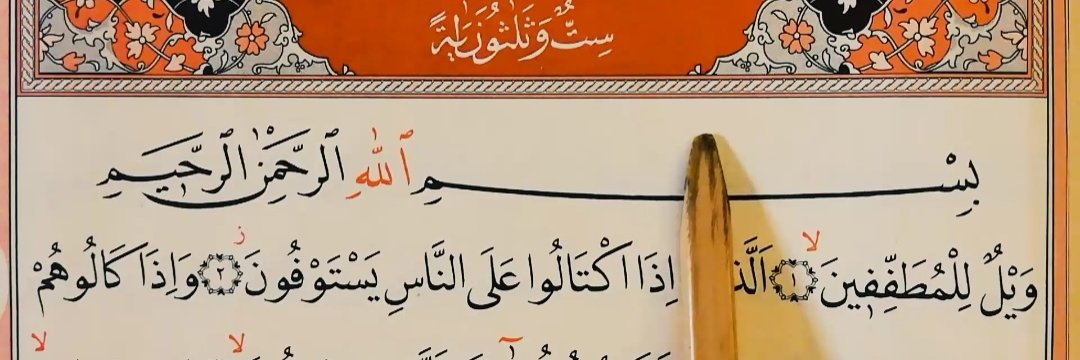 سِتٌّ وَثَلٰثُونَ اٰيَةً
بِسْمِ اللّٰهِ الرَّحْمٰنِ الرَّحٖيمِ
وَيْلٌ لِلْمُطَفِّفٖينَۙ ﴿١﴾ اِذَا اكْتَالُوا عَلَى النَّاسِ يَسْتَوْفُونَؗ ﴿٢﴾ وَاِذَا كَالُوهُمْ